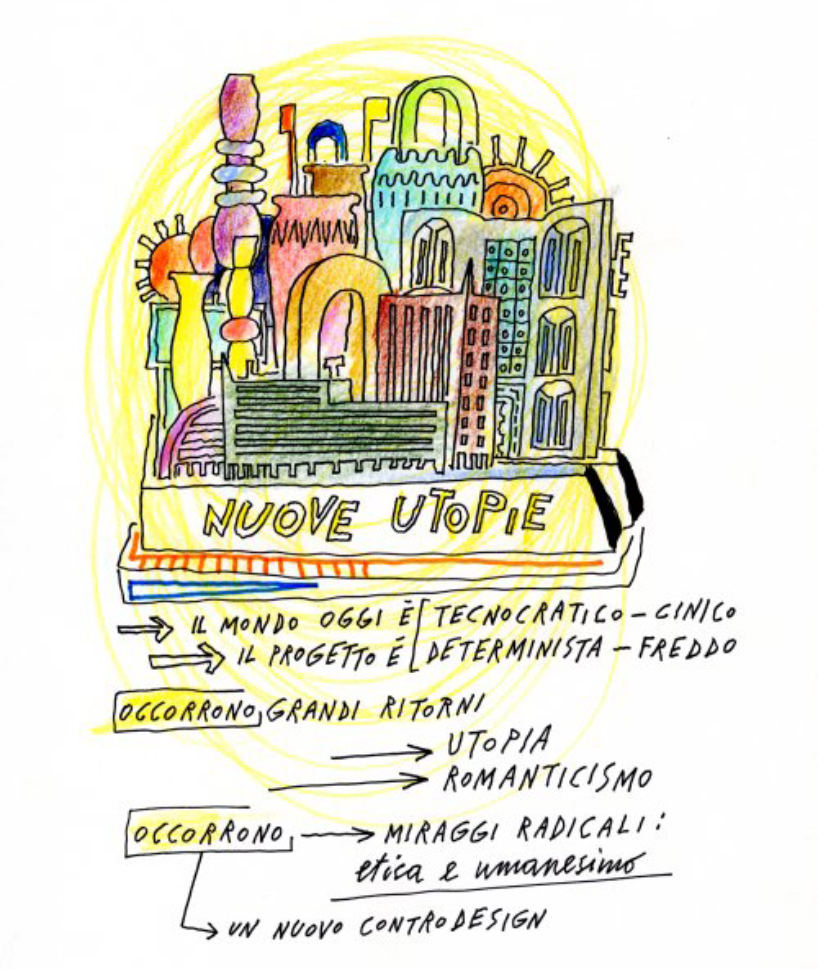 NUOVE UTOPIE
IL MONDO OGGI È TECNOCRATICO - CINICO
IL PROGETTO É DETERMINISTA - FREDDO
OCCORRONO, GRANDI RITORNI
UTOPIA
ROMANTICISMO
OCCORRONO, MIRAGGI RADICALI:
etica e umanesimo
UN NUOVO CONTRODESIGN